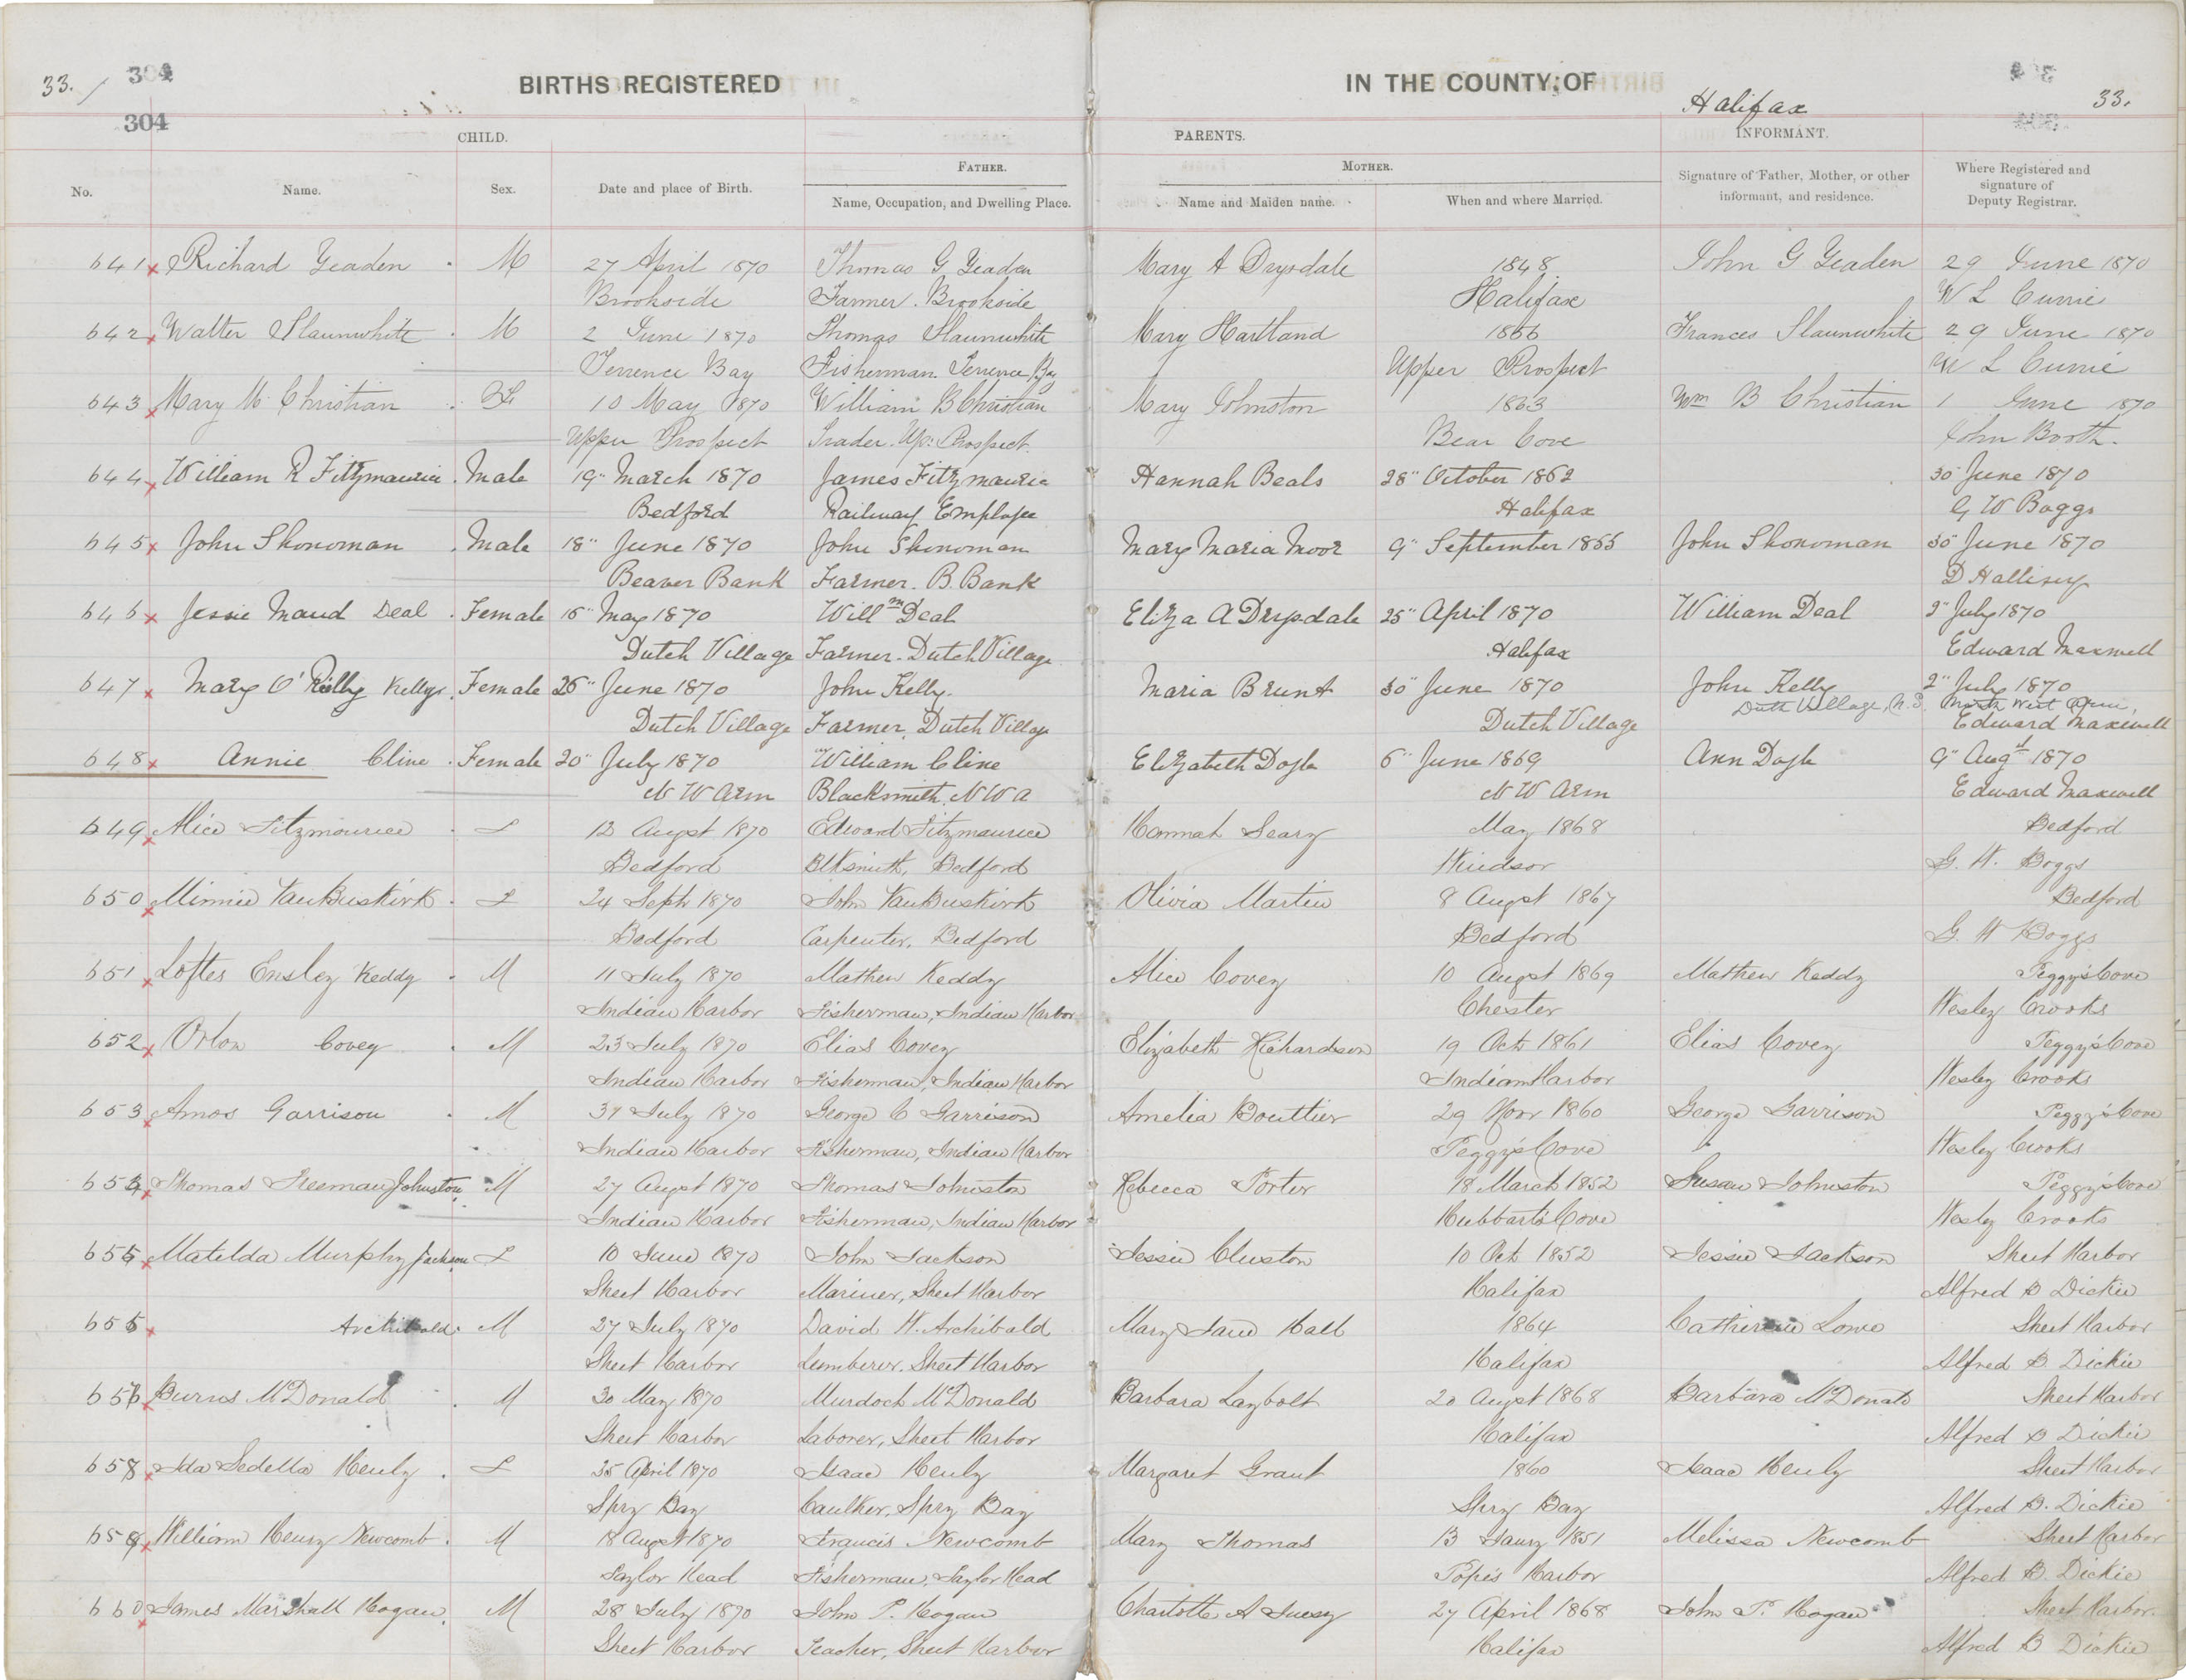 33. 304 BIRTHS REGISTERED IN THE COUNTY OF Halifax 33.
304
CHILD. PARENTS. INFORMANT.
FATHER. MOTHER.
No. Name. Sex. Date and place of Birth. Name, Occupation, and Dwelling Place. Name and Maiden name. When and where Married. Signature of Father, Mother, or other informant, and residence. Where Registered and signature of Deputy Registrar.
641 Richard Yeadon M 27 April 1870 Thomas G Yeadon Mary A Drysdale 1848 John G Yeadon 29 June 1870
Brookside Farmer. Brookside Halifax W L Currie
642 Walter Slaunwhite M 2 June 1870 Thomas Slaunwhite Mary Hartland 1866 Frances Slaunwhite 29 June 1870
Terrence Bay Fisherman. Terrence Bay Upper Prospect W L Currie
643 Mary M Christian F 10 May 1870 William B Christian Mary Johnston 1863 Wm B Christian 1 June 1870
Upper Prospect Trader. Up: Prospect. Bear Cove John Booth.
644 William R Fitzmaurice Male 19" March 1870 James Fitzmaurice Hannah Beals 28" October 1862 30 June 1870
Bedford Railway Employee Halifax G W Boggs
645 John Shonoman Male 18" June 1870 John Shonoman Mary Maria Moor 9" September 1865 John Shonoman 30" June 1870
Beaver Bank Farmer. B. Bank D Hallisey
646 Jessie Maud Deal Female 15" May 1870 Willm Deal Eliza A Drysdale 25" April 1870 William Deal 2" July 1870
Dutch Village Farmer. Dutch Village Halifax Edward Maxwell
647 Mary O'Rielly Kellys Female 25" June 1870 John Kelly. Maria Brunt 30" June 1870 John Kelly 2" July 1870
Dutch Village, N.S. North West Arm,
Dutch Village Farmer, Dutch Village Dutch Village Edward Maxwell
648 Annie Cline Female 20" July 1870 William Cline Elizabeth Doyle 6" June 1869 Ann Doyle 9" Augt 1870
N W Arm Blacksmith, N W A N W Arm Edward Maxwell
649 Alice Fitzmaurice F 12 Augst 1870 Edward Fitzmaurice Hannah Seary May 1868 Bedford
Bedford Blksmith, Bedford Windsor G. W. Boggs
650 Minnie VanBuskirk F 24 Sept 1870 John VanBuskirk Olivia Martin 8 Augst 1867 Bedford
Bedford Carpenter, Bedford Bedford G. W Boggs
651 Loftes Ensley Keddy M 11 July 1870 Mathew Keddy Alice Covey 10 Augst 1869 Mathew Keddy Peggy's Cove
Indian Harbor Fisherman, Indian Harbor Chester Wesley Crooks
652 Orlon Covey M 23 July 1870 Elias Covey Elizabeth Richardson 19 Oct 1861 Elias Covey Peggy's Cove
Indian Harbor Fisherman, Indian Harbor Indian Harbor Wesley Crooks
653 Amos Garrison M 31 July 1870 George C Garrison Amelia Boutlier 29 Novr 1860 George Garrison Peggy's Cove
Indian Harbor Fisherman, Indian Harbor Peggy's Cove Wesley Crooks
654 Thomas Freeman Johnston M 27 Augst 1870 Thomas Johnston Rebecca Porter 18 March 1852 Susan Johnston Peggy's Cove
Indian Harbor Fisherman, Indian Harbor Hubbart's Cove Wesley Crooks
655 Matilda Murphy Jackson F 10 June 1870 John Jackson Jessie Cluston 10 Oct 1852 Jessie Jackson Sheet Harbor
Sheet Harbor Mariner, Sheet Harbor Halifax Alfred B Dickie
656 Archibald M 27 July 1870 David W. Archibald Mary Jane Hall 1864 Catherine Lowe Sheet Harbor
Sheet Harbor Lumberer, Sheet Harbor Halifax Alfred B. Dickie
657 Burns McDonald M 30 May 1870 Murdoch McDonald Barbara Laybolt 20 Augst 1868 Barbara McDonald Sheet Harbor
Sheet Harbor Laborer, Sheet Harbor Halifax Alfred B Dickie
658 Ida Sedella Henly F 25 April 1870 Isaac Henly Margaret Grant 1860 Isaac Henly Sheet Harbor
Spry Bay Caulker, Spry Bay Spry Bay Alfred B. Dickie
659 William Henry Newcomb M 18 Augst 1870 Francis Newcomb Mary Thomas 13 Jany 1851 Melissa Newcomb Sheet Harbor
Taylor Head Fisherman, Taylor Head Pope's Harbor Alfred B. Dickie
660 James Marshall Hogan. M 28 July 1870 John P. Hogan Charlotte A 27 April 1868 John P. Hogan Sheet Harbor.
Sheet Harbor Teacher, Sheet Harbor Halifax Alfred B Dickie